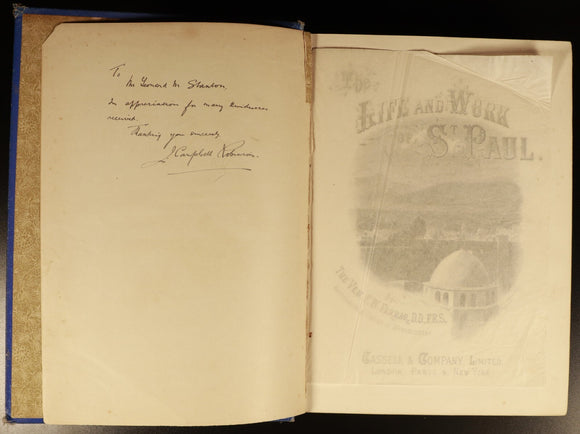 To
Mr Leonard M. Stanton.
In appreciation for many kindnesses
received.
Thanking you sincerely
J. Campbell Robinson.
The
LIFE AND WORK
OF ST PAUL.
BY
THE VEN. F. W. FARRAR, D.D., F.R.S.
CASSELL & COMPANY, LIMITED
LONDON, PARIS & NEW YORK.